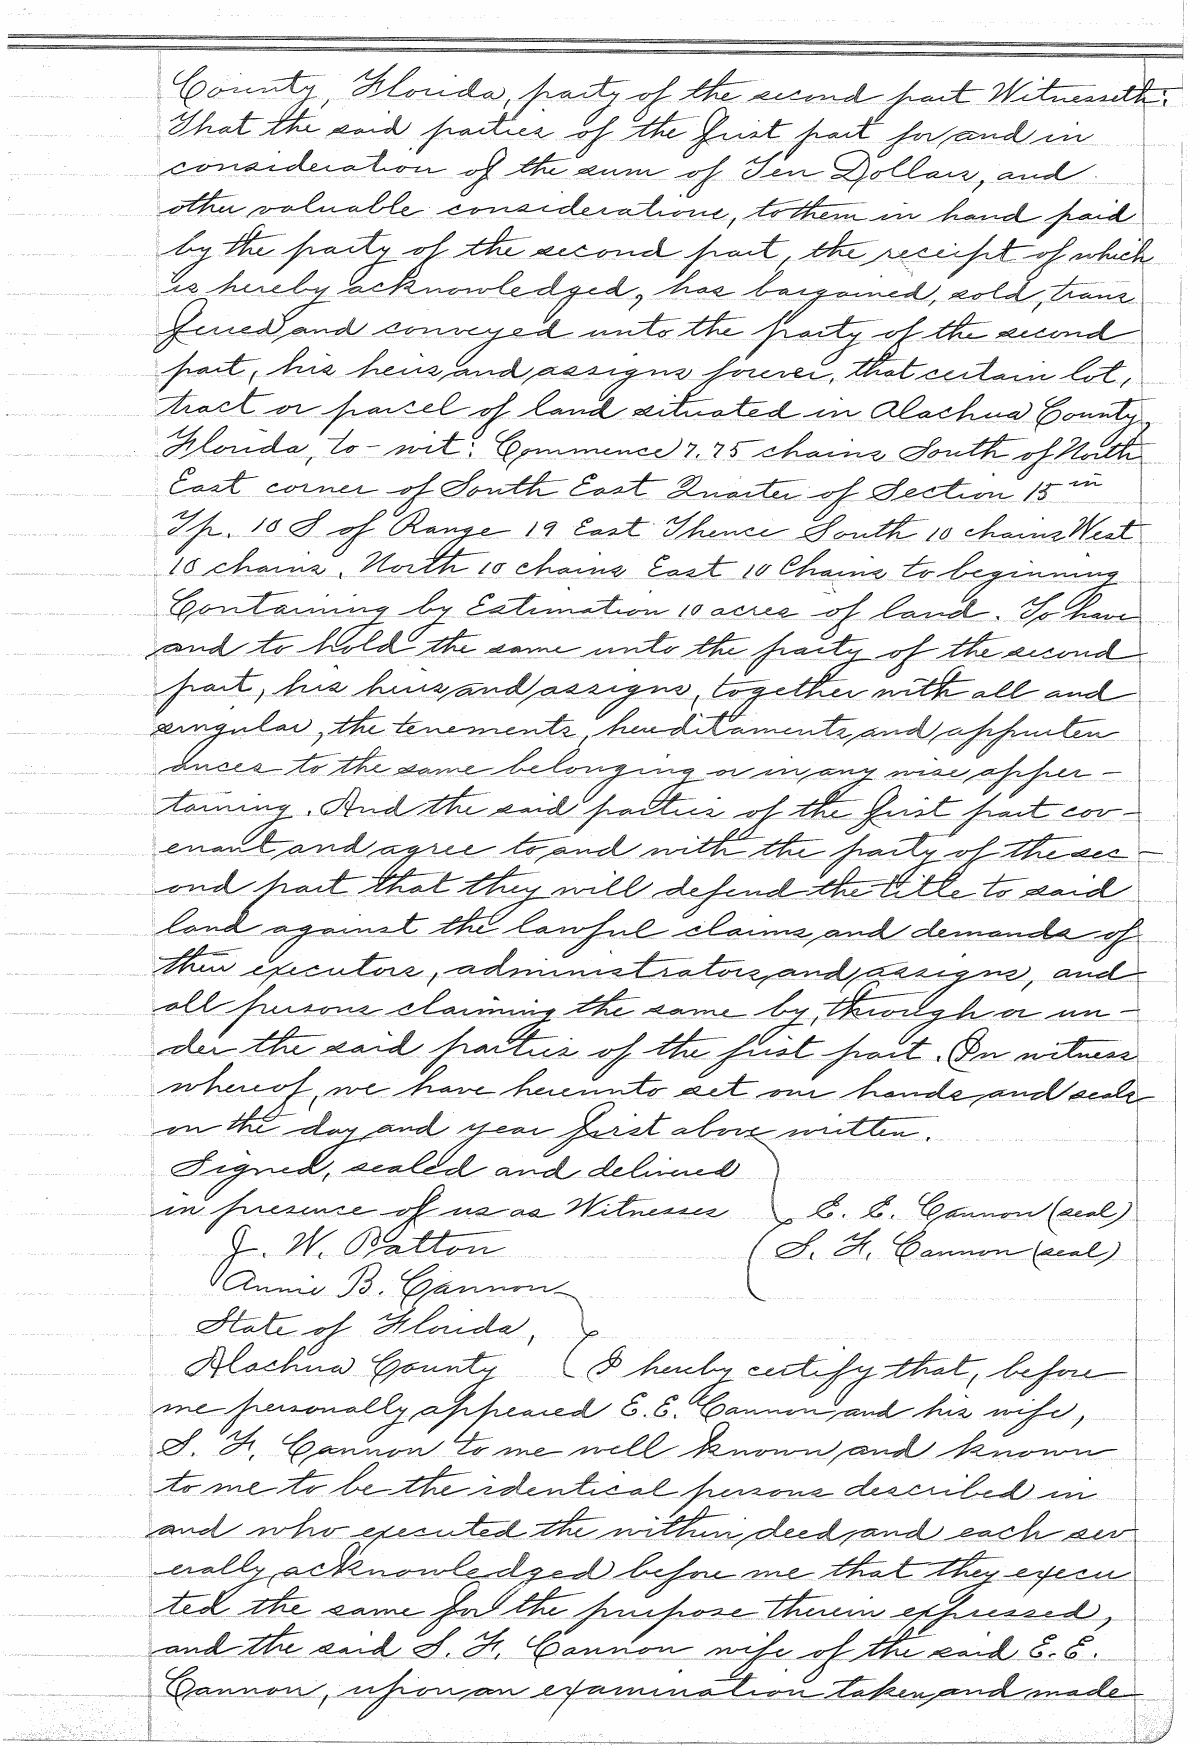 County, Florida, party of the second part Witnesseth:
That the said parties of the first part for and in
consideration of the sum of Ten Dollars, and
other valuable considerations, to them in hand paid
by the party of the second part, the receipt of which
is hereby acknowledged, has bargained, sold, trans
ferred and conveyed unto the party of the second
part, his heirs and assigns forever, that certain lot,
tract or parcel of land situated in Alachua County,
Florida, to-wit: Commence 7.75 chains South of North
East corner of South East Quarter of Section 15 in
Tp. 10 S of Range 19 East Thence South 10 chains West
10 chains, North 10 chains East 10 Chains to beginning
Containing by Estimation 10 acres of land. To have
and to hold the same unto the party of the second
part, his heirs and assigns, together with all and
singular, the tenements, hereditaments and appurten
ances to the same belonging or in any wise apper-
taining. And the said parties of the first part cov-
enant and agree to and with the party of the sec-
ond part that they will defend the title to said
land against the lawful claims and demands of
their executors, administrators and assigns, and
all persons claiming the same by, through or un-
der the said parties of the first part. In witness
whereof, we have hereunto set our hands and seals
on the day and year first above written.
Signed, sealed and delivered
in presence of us as Witnesses E. E. Cannon (seal)
J. W. Patton S. F. Cannon (seal)
Annie B. Cannon
State of Florida,
Alachua County I hereby certify that, before
me personally appeared E.E. Cannon and his wife,
S. F. Cannon to me well known and known
to me to be the identical persons described in
and who executed the within deed and each sev
erally acknowledged before me that they execu
ted the same for the purpose therein expressed,
and the said S. F. Cannon wife of the said E.E.
Cannon, upon an examination taken and made